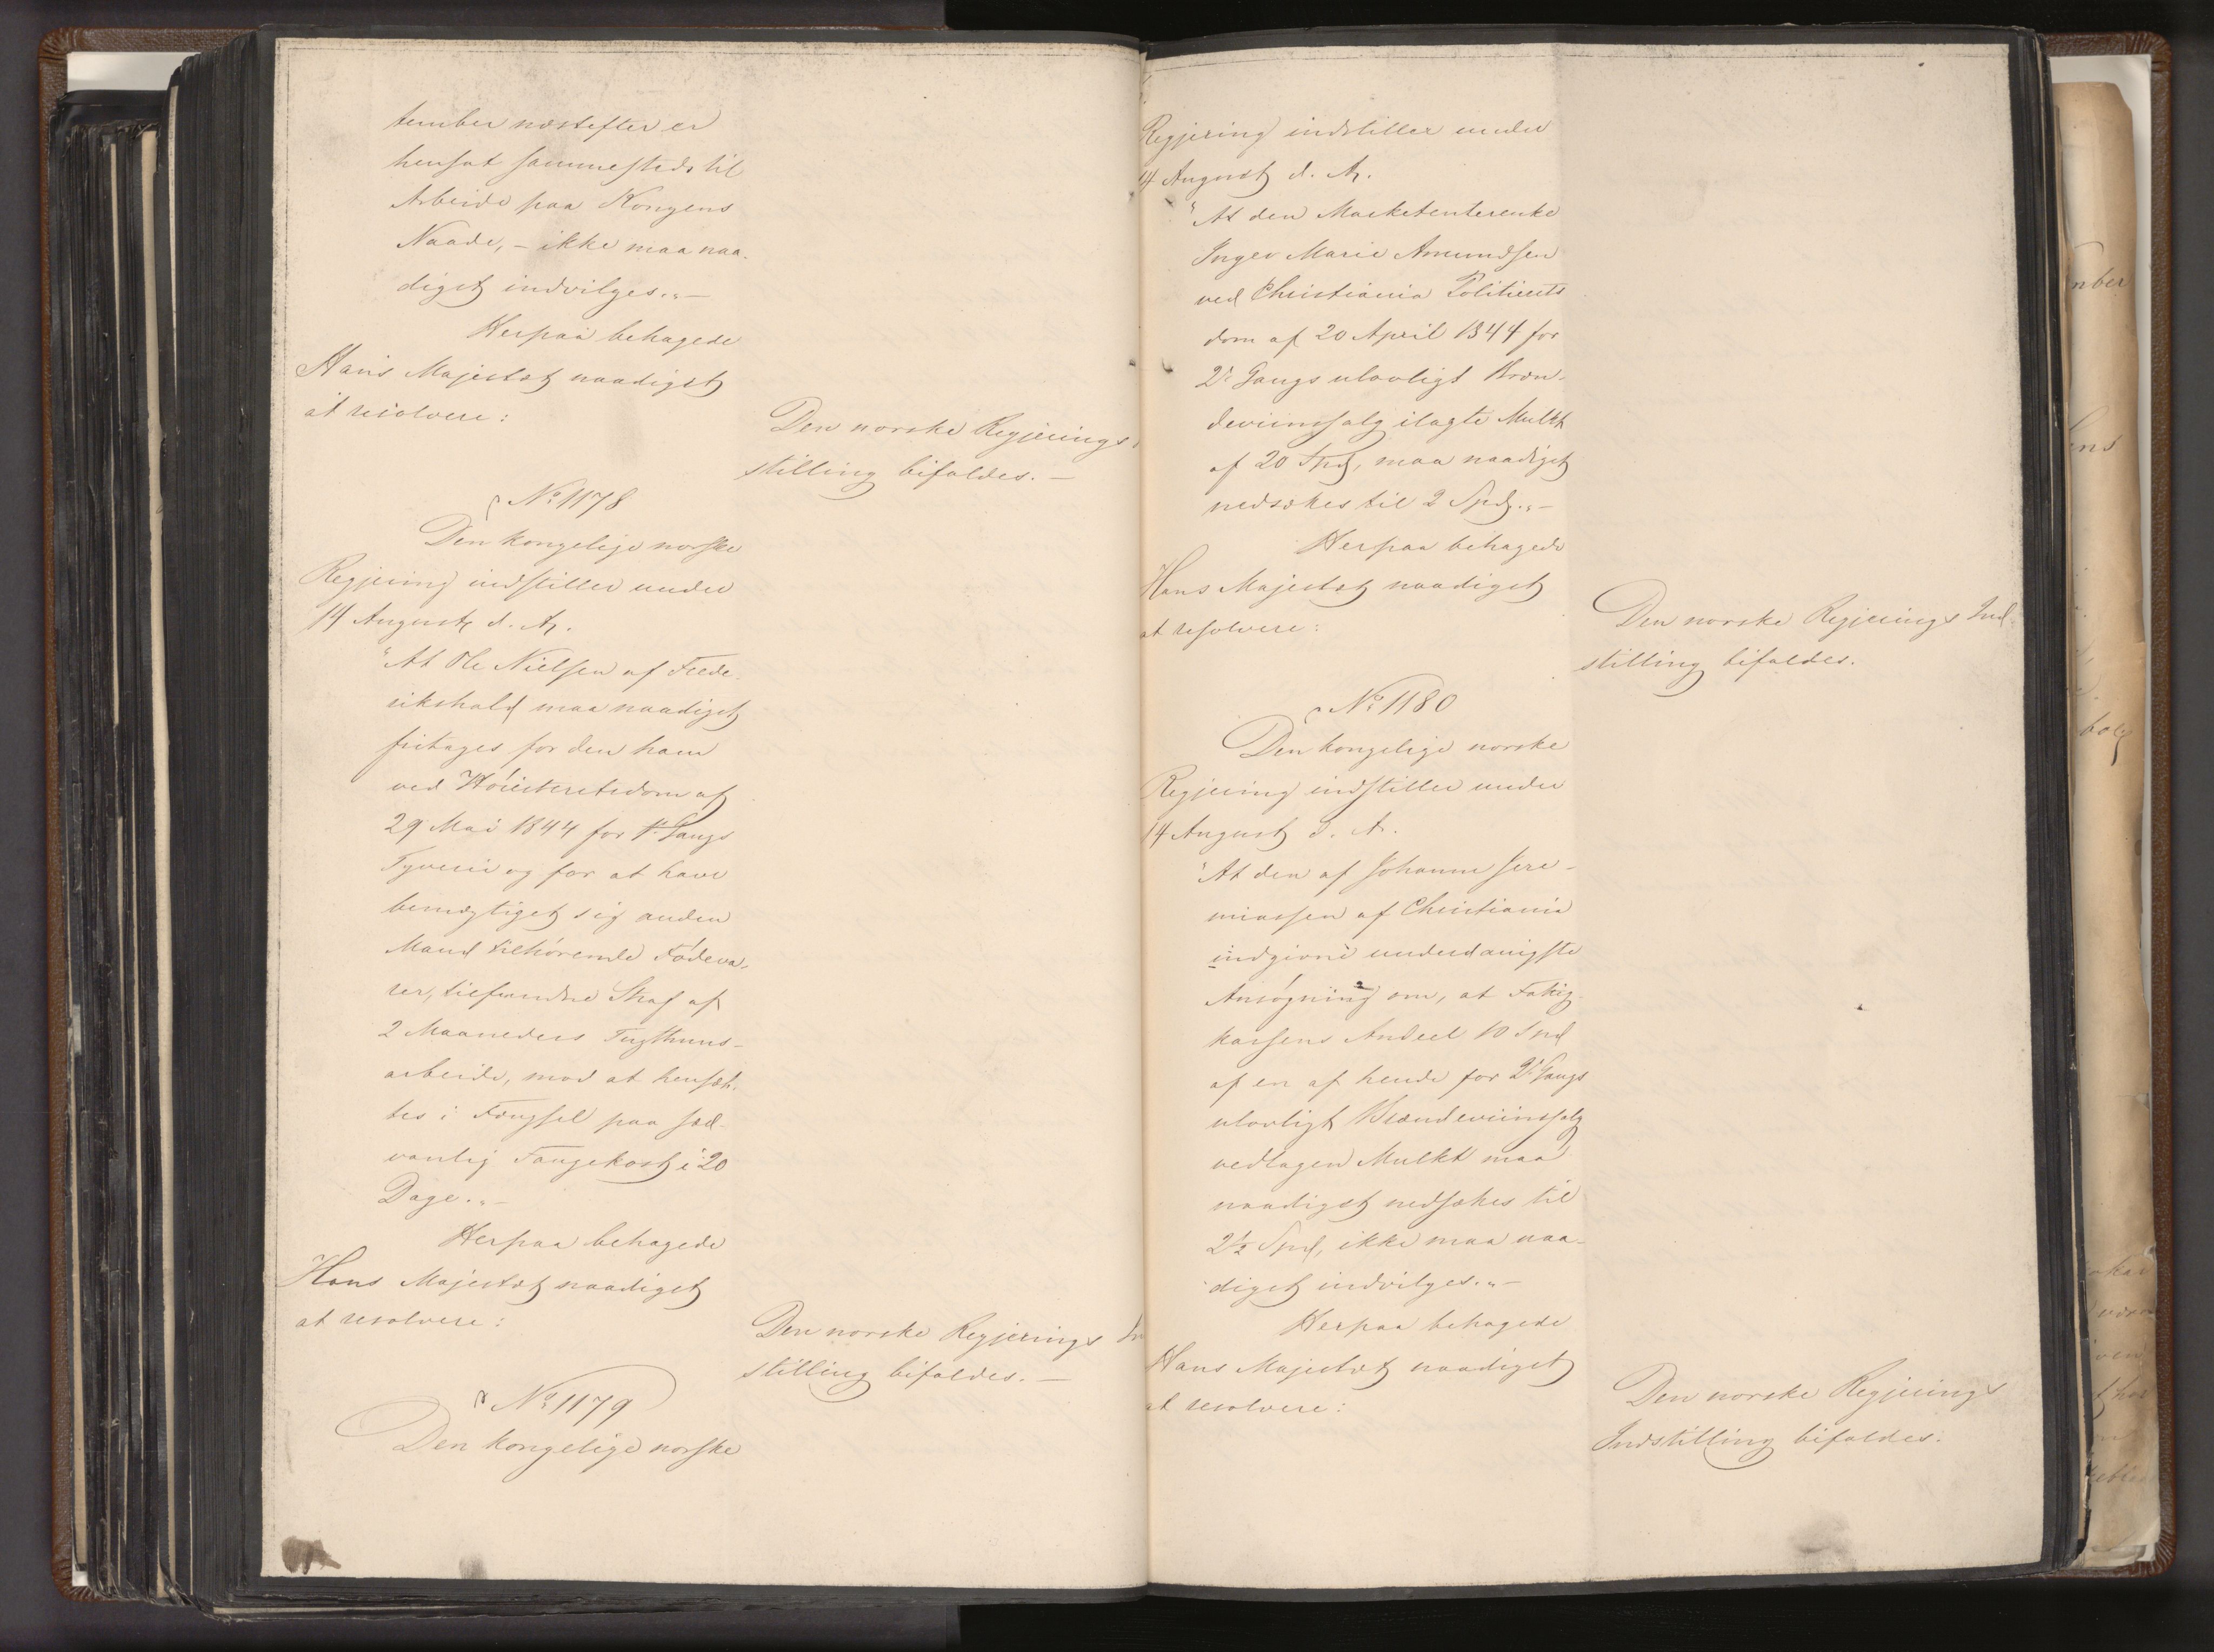 tember næstefter er
hensat sammesteds til
Arbeide paa Kongens
Naade, – ikke maa naa-
digst indvilges." –
Herpaa behagede
Hans Majestæt naadigst
at resolvere:
Den norske Regjerings
stilling bifaldes. –
No 1178
Den kongelige norske
Regjering indstiller under
14 August d. A.
"At Ole Nielsen af Frede-
rikshald maa naadigst
fritages for den ham
ved Høiesteretsdom af
29 Mai 1844 for 1e Gangs
Tyverie og for at have
bemægtiget sig anden
Mand tilhørende Fødeva-
rer, tilfundne Straf af
2 Maaneders Tugthuus-
arbeide, mod at hensæt-
tes i Fængsel paa sæd-
vanlig Fangekost i 20
Dage." –
Herpaa behagede
Hans Majestæt naadigst
at resolvere:
Den norske Regjerings In
stilling bifaldes. –
No 1179
Den kongelige norske
Regjering indstiller under
14 August d. A.
"At den Marketenterenke
Inger Marie Amundsen
ved Christiania Politierets
dom af 20 April 1844 for
2n Gangs ulovligt Bræn-
deviinssalg ilagte Mulkt
af 20 Spd, maa naadigst
nedsættes til 2 Spd." –
Herpaa behagede
Hans Majestæt naadigst
at resolvere:
Den norske Regjerings Ind-
stilling bifaldes.
No 1180
Den kongelige norske
Regjering indstiller under
14 August d. A.
"At den af Johanne Jere-
miassen af Christiania
indgivne underdanigste
Ansøgning om, at Fattig-
kassens Andeel 10 Spd
af en af hende for 2n Gangs
ulovligt Brændeviinssalg
vedtagen Mulkt maa
naadigst nedsættes til
2½ Spd, ikke maa naa-
digst indvilges." –
Herpaa behagede
Hans Majestæt naadigst
at resolvere:
Den norske Regjerings
Indstilling bifaldes.